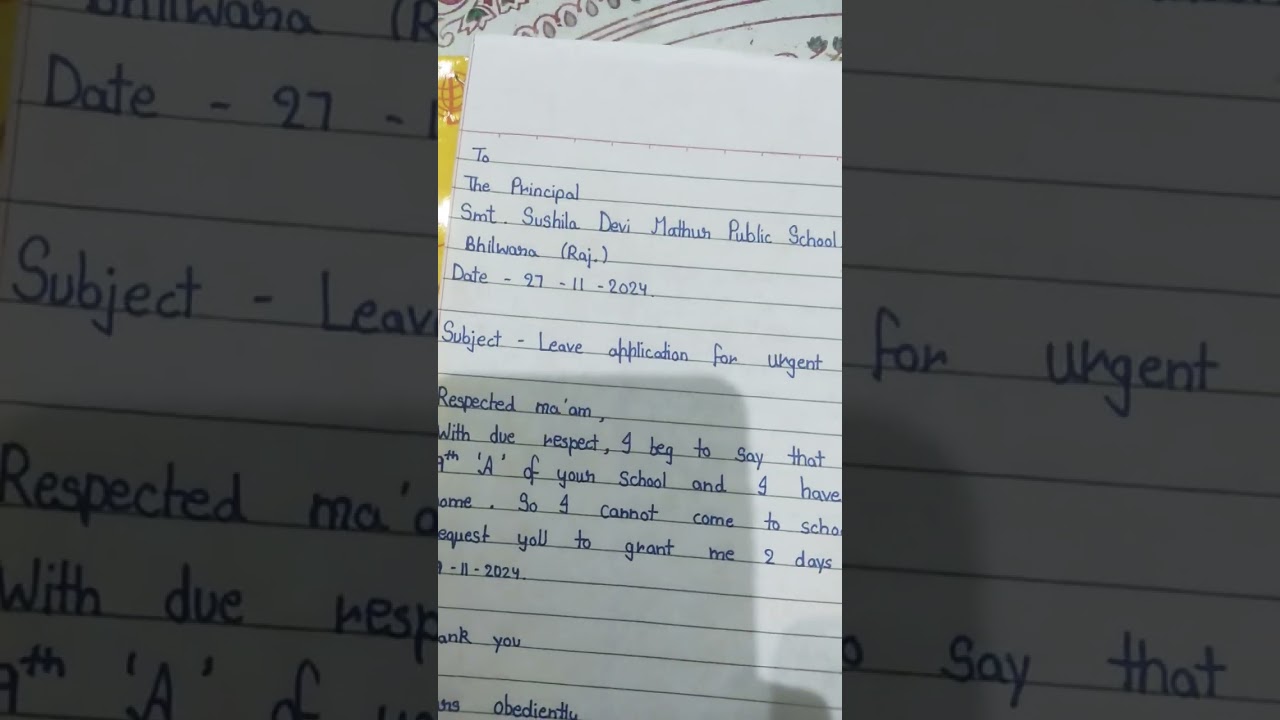 To
The Principal
Smt. Sushila Devi Mathur Public School
Bhilwara (Raj.)
Date - 27 - 11 - 2024.
Subject - Leave application for urgent
Respected ma'am,
With due respect, I beg to say that
9th 'A' of your school and I have
ome. So I cannot come to scho
equest you to grant me 2 days
-11-2024.
ank you
obediently